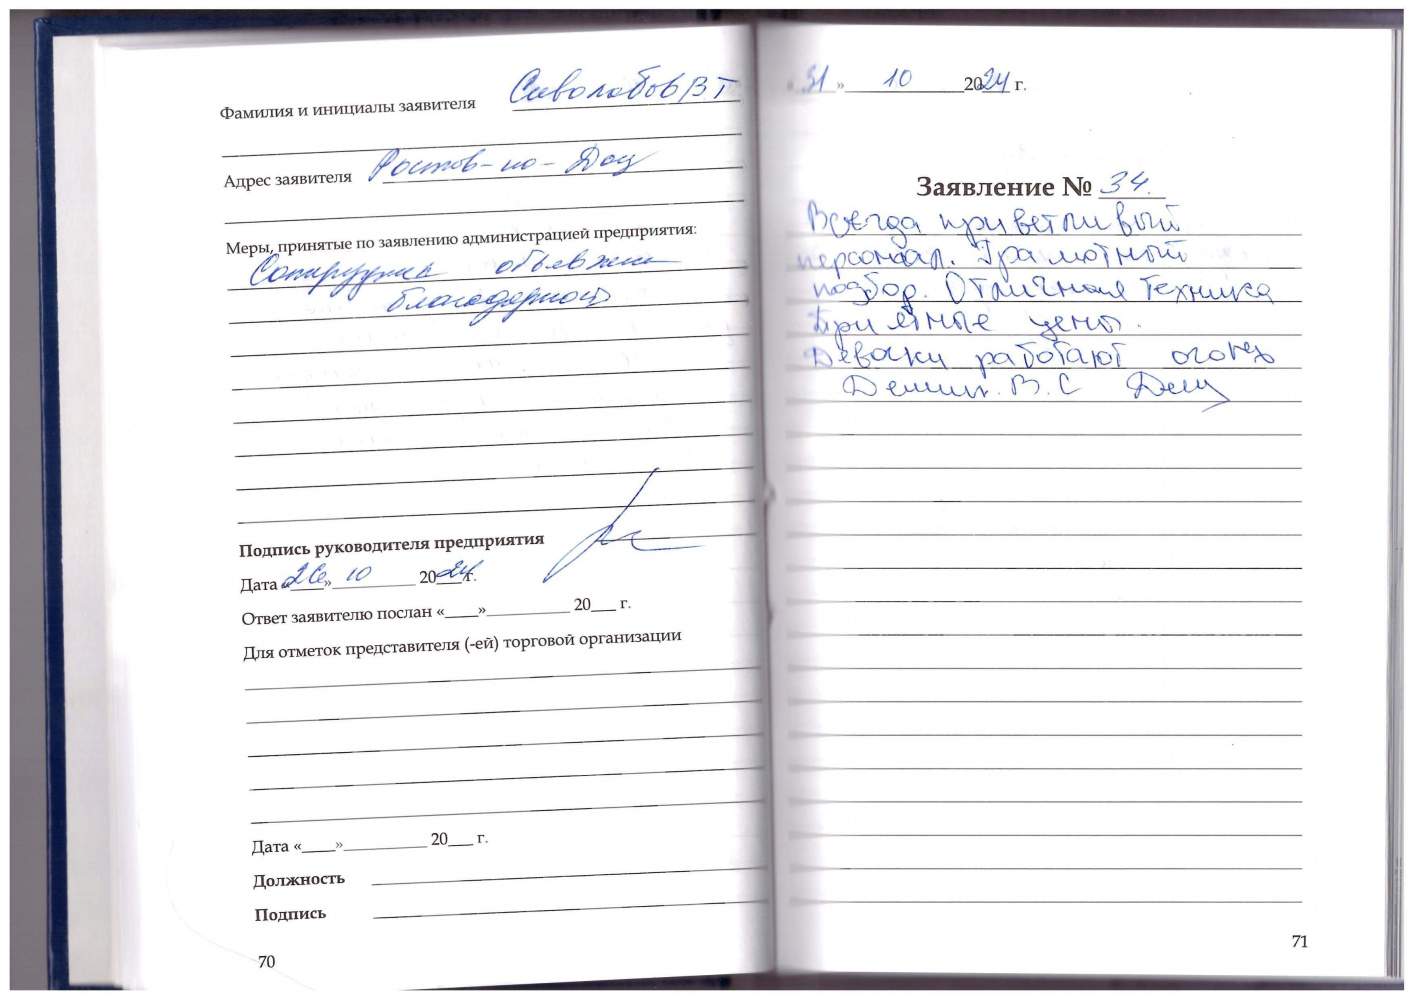 Фамилия и инициалы заявителя Сиволобов В Т
Адрес заявителя Ростов-на-Дону
Меры, принятые по заявлению администрацией предприятия:
Сотруднику объявлена
благодарность
Подпись руководителя предприятия
Дата «26» 10 2024 г.
Ответ заявителю послан «____»__________ 20___ г.
Для отметок представителя (-ей) торговой организации
Дата «____»__________ 20___ г.
Должность
Подпись
70
«31» 10 2024 г.
Заявление № 34.
Всегда приветливый
персонал. Грамотный
подбор. Отличная техника
Приятные цены.
Девочки работают огонь
В. С
71